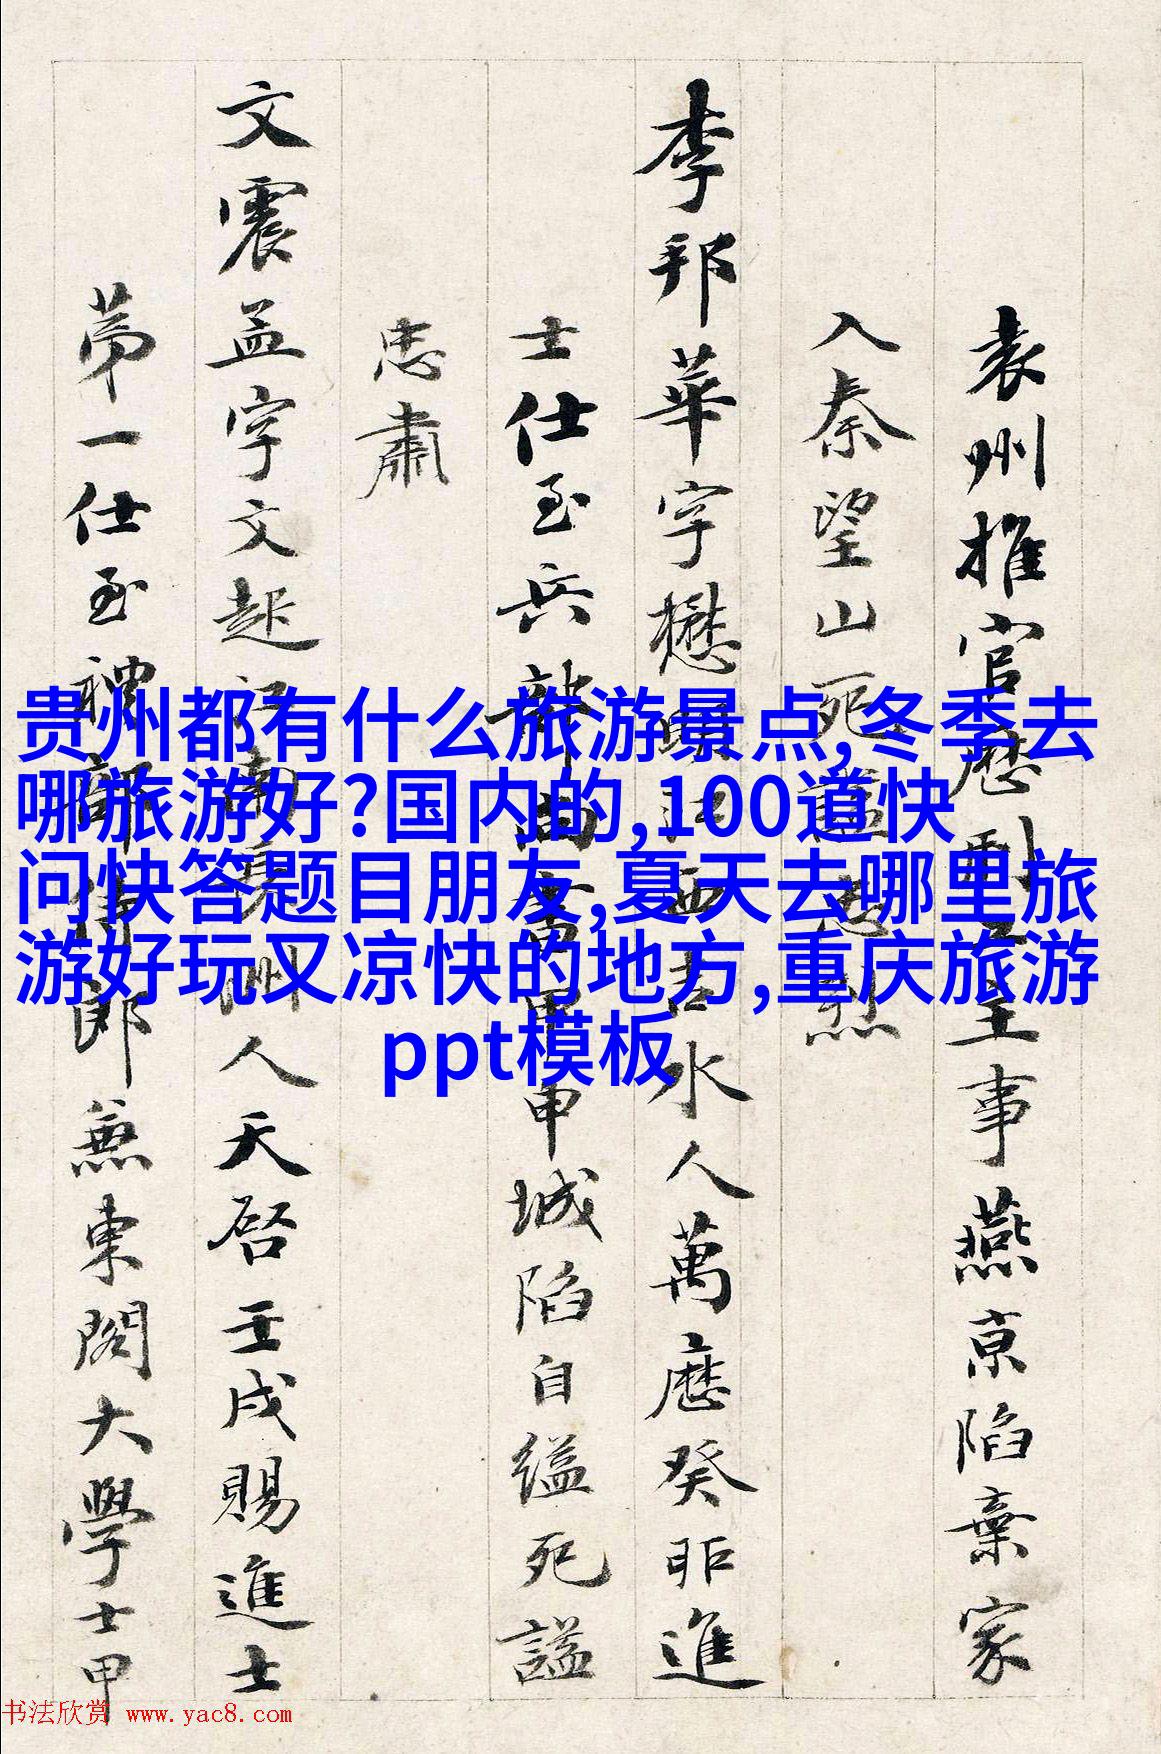 贵州都有什么旅游景点,冬季去
哪旅游好?国内的,100道快
问快答题目朋友,夏天去哪里旅
游好玩又凉快的地方,重庆旅游
ppt模板
袁州推官歷主事燕京陷棄家
入秦望山死謚忠烈
李邦華字懋明江西吉水人萬歷癸卯進
士仕至兵部甲申城陷自縊死謚
忠肅
文震孟字文起江南州人天啓壬戌賜進士
第一仕至禮部侍郎兼東閣大學士甲
书法欣赏 www.yac8.com